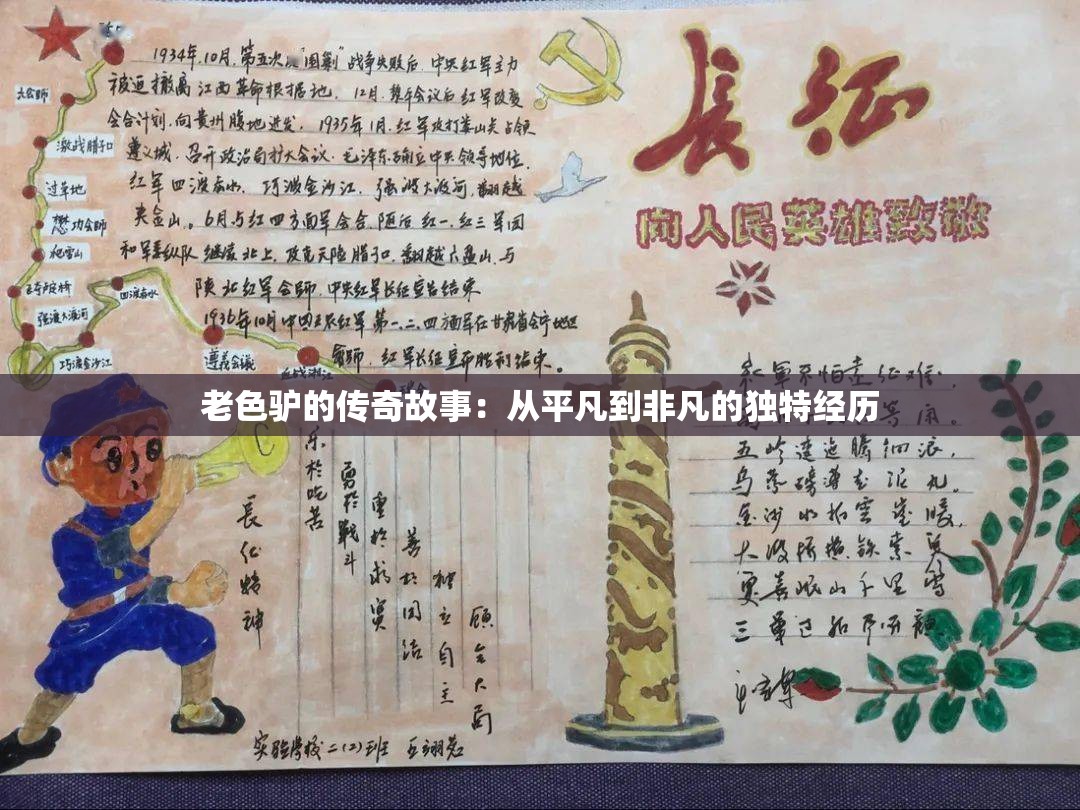 1934年.10月,第五次反"围剿"战争失败后,中央红军主力
被迫撤离江西革命根据地.12月.黎平会议后红军改变
会合计划,向贵州腹地进发.1935年1月,红军攻打娄山关占领
遵义城.召开政治局扩大会议.毛泽东确立中央领导地位.
红军四渡赤水.巧渡金沙江.强渡大渡河.翻越
夹金山.6月与红四方面军会合.随后红一.红三军团
和军委纵队继续北上.攻克天险腊子口.翻越六盘山.与
陕北红军会师.中央红军长征宣告结束
1936年10月中国工农红军第一.二.四方面军在甘肃省会宁地区
会师.红军长征宣布胜利结束。
大会师
激战腊子口
过草地
懋功会师
爬雪山
飞夺泸定桥
强渡大渡河
巧渡金沙江
四渡赤水
遵义会议
血战湘江
长征
向人民英雄致敬
老色驴的传奇故事：从平凡到非凡的独特经历
长征精神
乐于吃苦
勇于战斗
重于求实
善于团结
独立自主
顾全大局
红军不怕远征难.
五岭逶迤腾细浪,
乌蒙磅礴走泥丸。
金沙水拍云崖暖,
大渡桥横铁索寒
更喜岷山千里雪
三军过后尽开颜
实验学校二(2)班